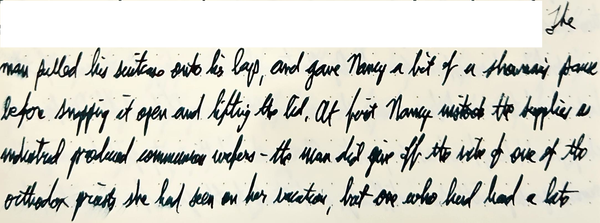 The
man pulled his suitcase onto his lap, and gave Nancy a bit of a showman pause
before snapping it open and lifting the lid. At first Nancy mistook the supplies as
industrial produced communion wafers - the man did give off the vibe of one of the
orthodox priests she had seen on her vacation, but one who had had a lots